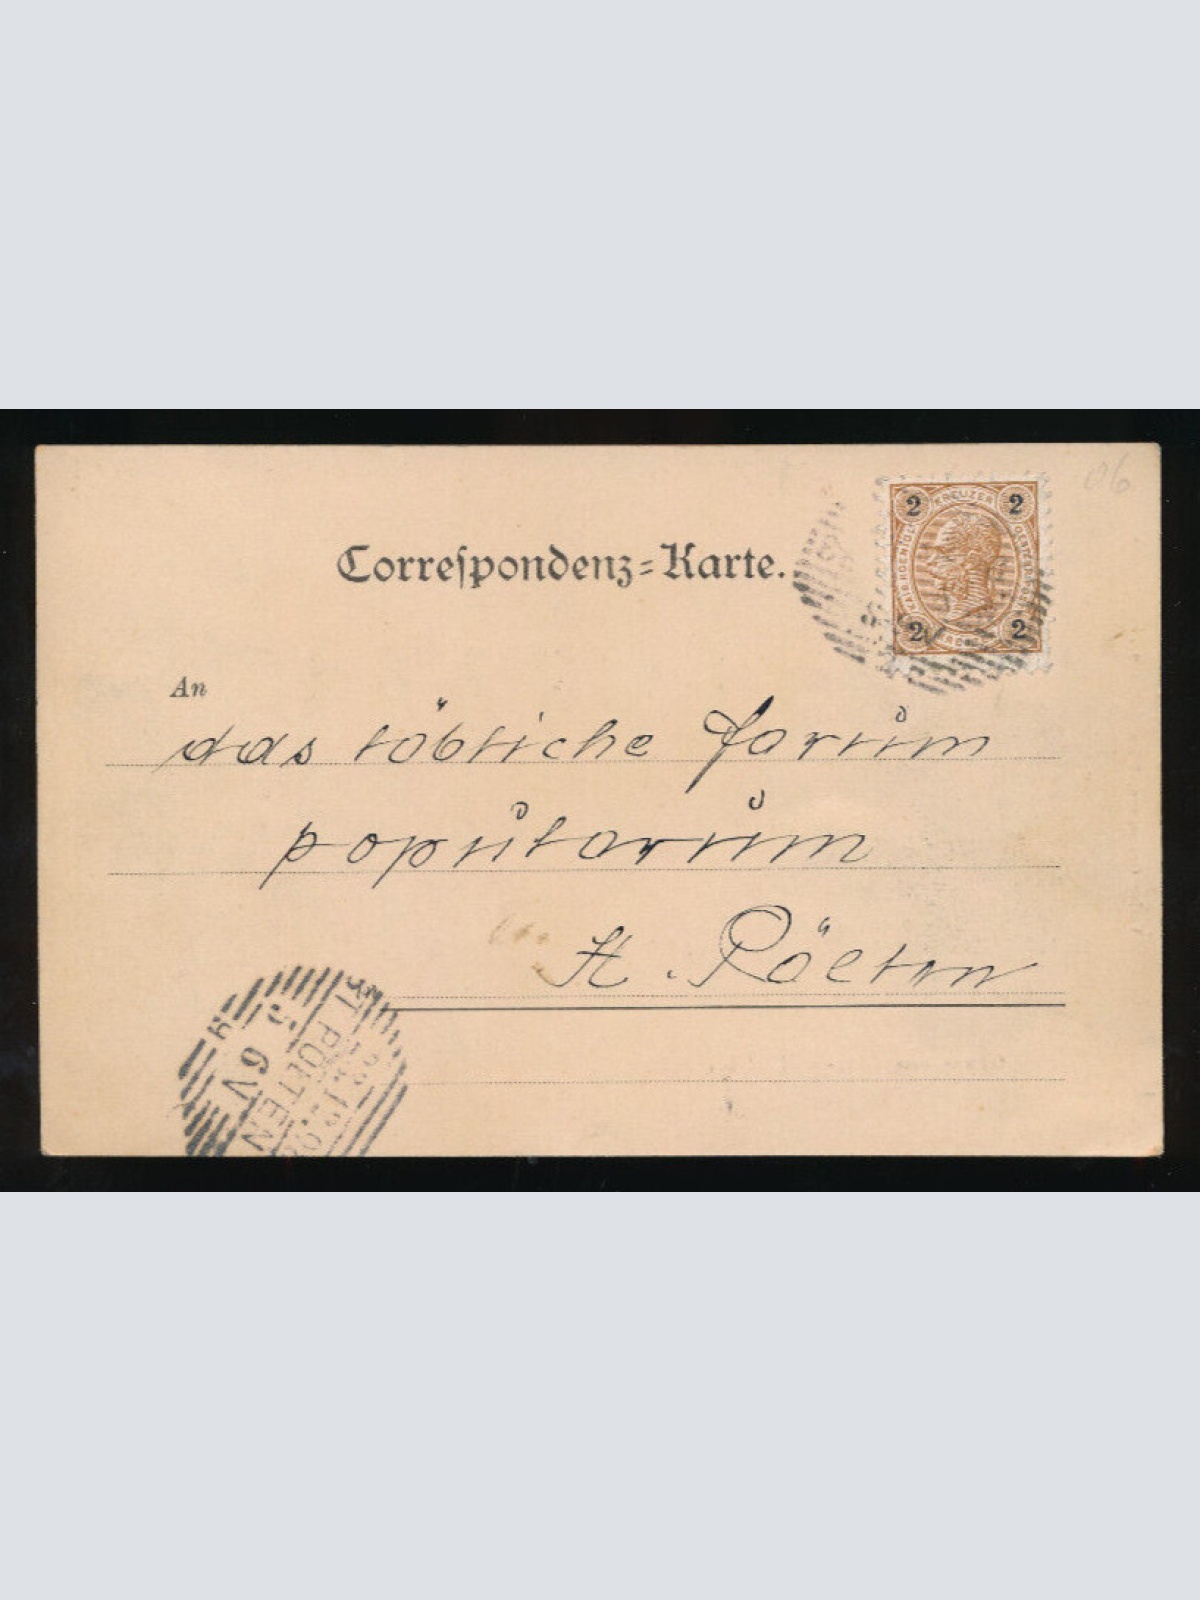 06
2 KREUZER 2
2 2
Correspondenz-Karte.
An
das löbliche forum
populorum
St. Pölten
ST. PÖLTEN
6 V